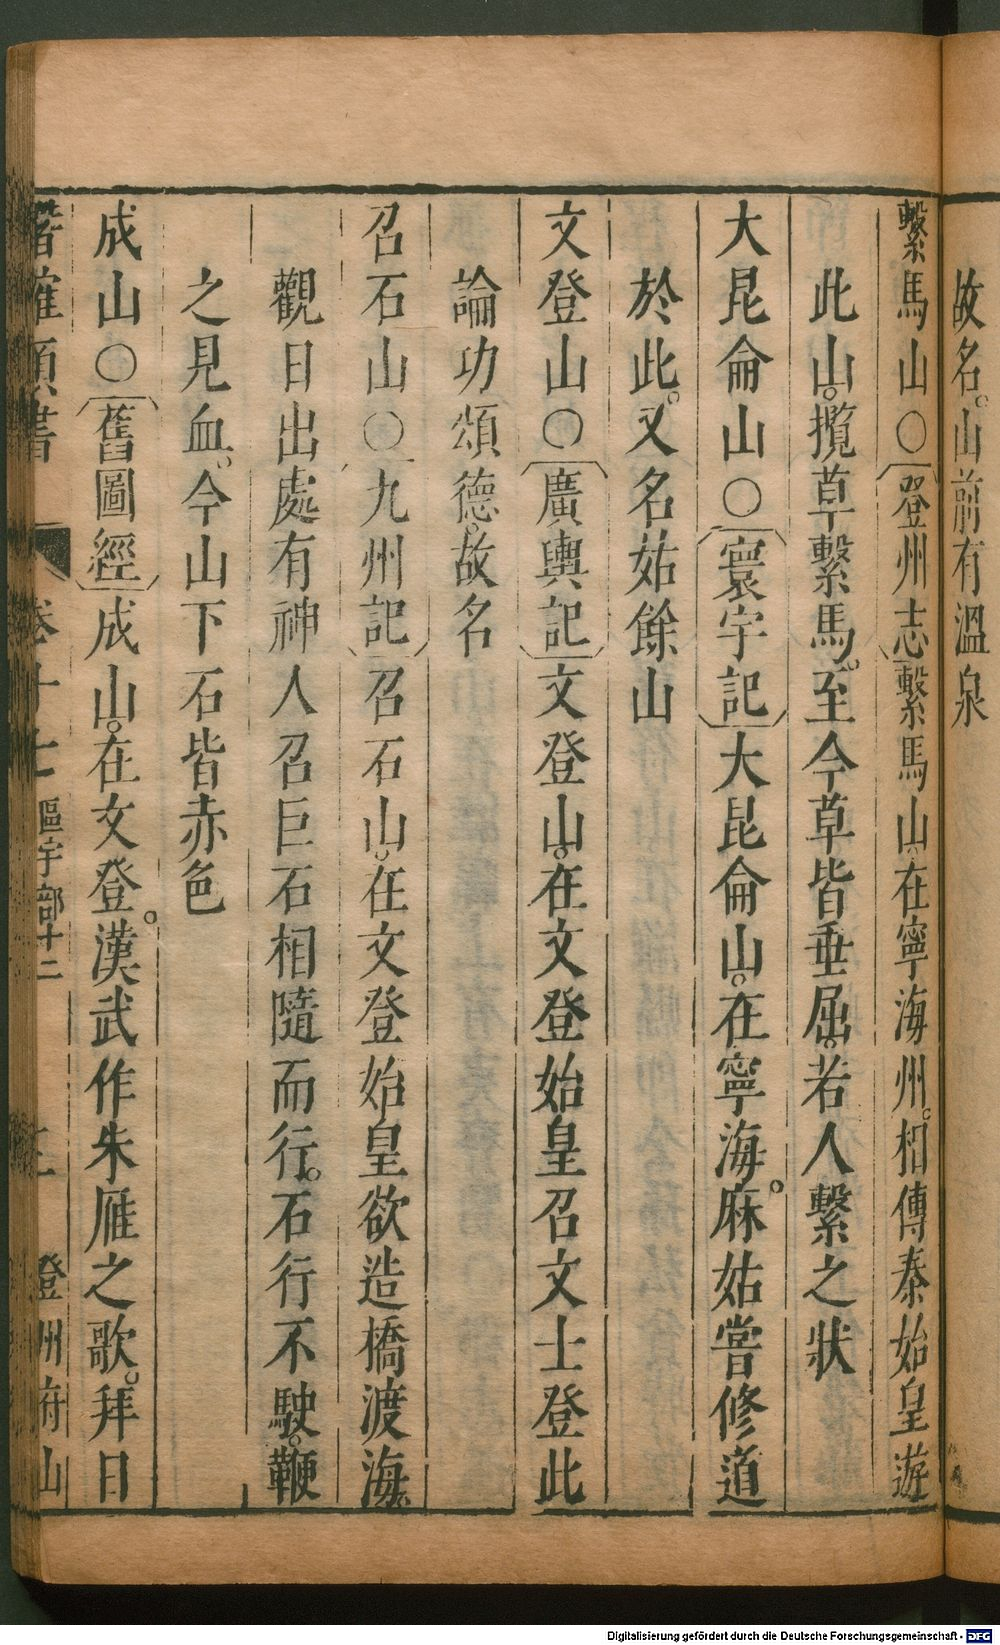 故名。山前有溫泉
繫馬山○〔登州志〕繫馬山。在寧海州。相傳秦始皇遊
此山。攬草繫馬。至今草皆垂屈。若人繫之狀
大昆侖山○〔寰宇記〕大昆侖山。在寧海。麻姑嘗修道
於此。又名姑餘山
文登山○〔廣輿記〕文登山。在文登始皇召文士登此
論功頌德。故名
召石山○〔九州記〕召石山。在文登始皇欲造橋渡海。
觀日出處有神人召巨石相隨而行。石行不駛。鞭
之見血。今山下石皆赤色
成山○〔舊圖經〕成山。在文登。漢武作朱雁之歌。拜日
潛確類書 卷十七 區宇部十二 三 登州府山
Digitalisierung gefördert durch die Deutsche Forschungsgemeinschaft - DFG